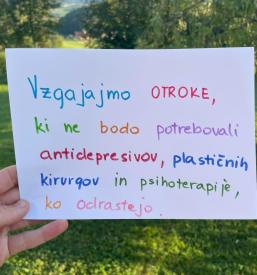 Vzgajajmo OTROKE,
ki ne bodo potrebovali
antidepresivov, plastičnih
kirurgov in psihoterapije,
ko odrastejo.